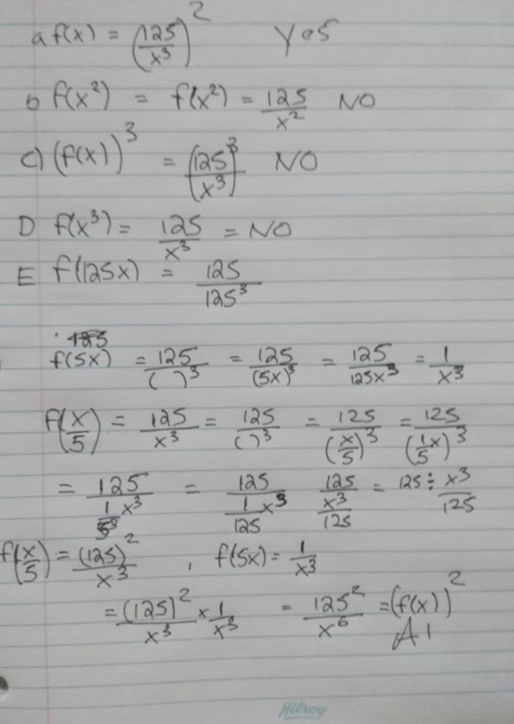 a f(x) = (125/x³)² Yes
b f(x²) = f(x²) = 125/x² NO
c) (f(x))³ = (125/x³)³ NO
D f(x³) = 125/x³ = NO
E f(125x) = 125/125³
f(5x) = 125/( )³ = 125/(5x)³ = 125/125x³ = 1/x³
f(x/5) = 125/x³ = 125/( )³ = 125/(x/5)³ = 125/(1/5 x)³
= 125/(1/5³ x³) = 125/(1/125 x³) 125/(x³/125) = 125 ÷ x³/125
f(x/5) = (125)²/x³ , f(5x) = 1/x³
= (125)²/x³ × 1/x³ = 125²/x⁶ = (f(x))²
A1
Hilroy